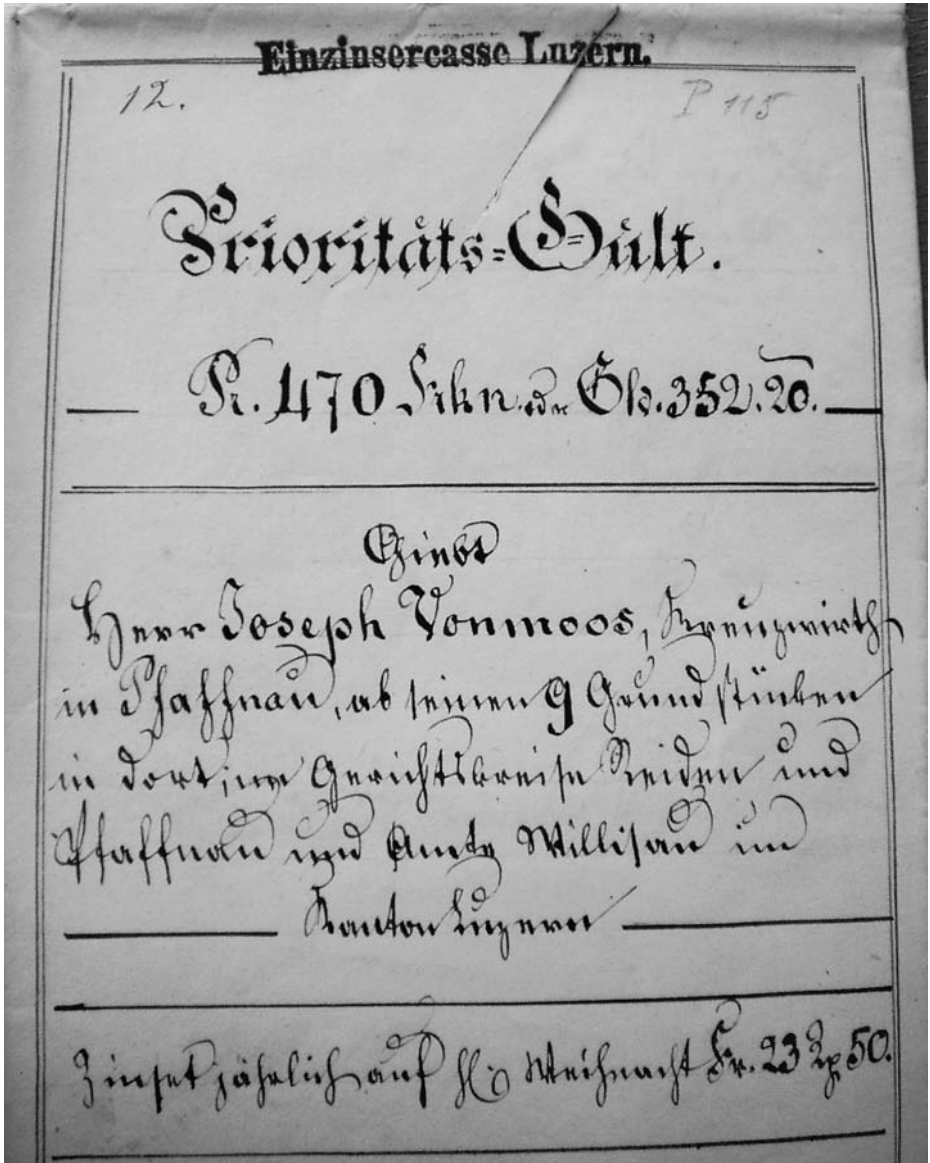 Einzinsercasse Luzern.
12. P 115
Prioritäts=Gült.
Pr. 470 Frkn. odr Gl. 352. 20.
Giebt
Herr Joseph Vonmoos, Kreuzwirth
in Pfaffnau, ab seinen 9 Grundstücken
in dortigen Gerichtskreise Reiden und
Pfaffnau und Amte Willisau im
Kanton Luzern
Zinset jährlich auf hl. Weihnacht Fr. 23 Rp. 50.